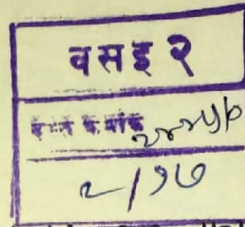 वसइ २
दस्त क्रमांक
२/१७